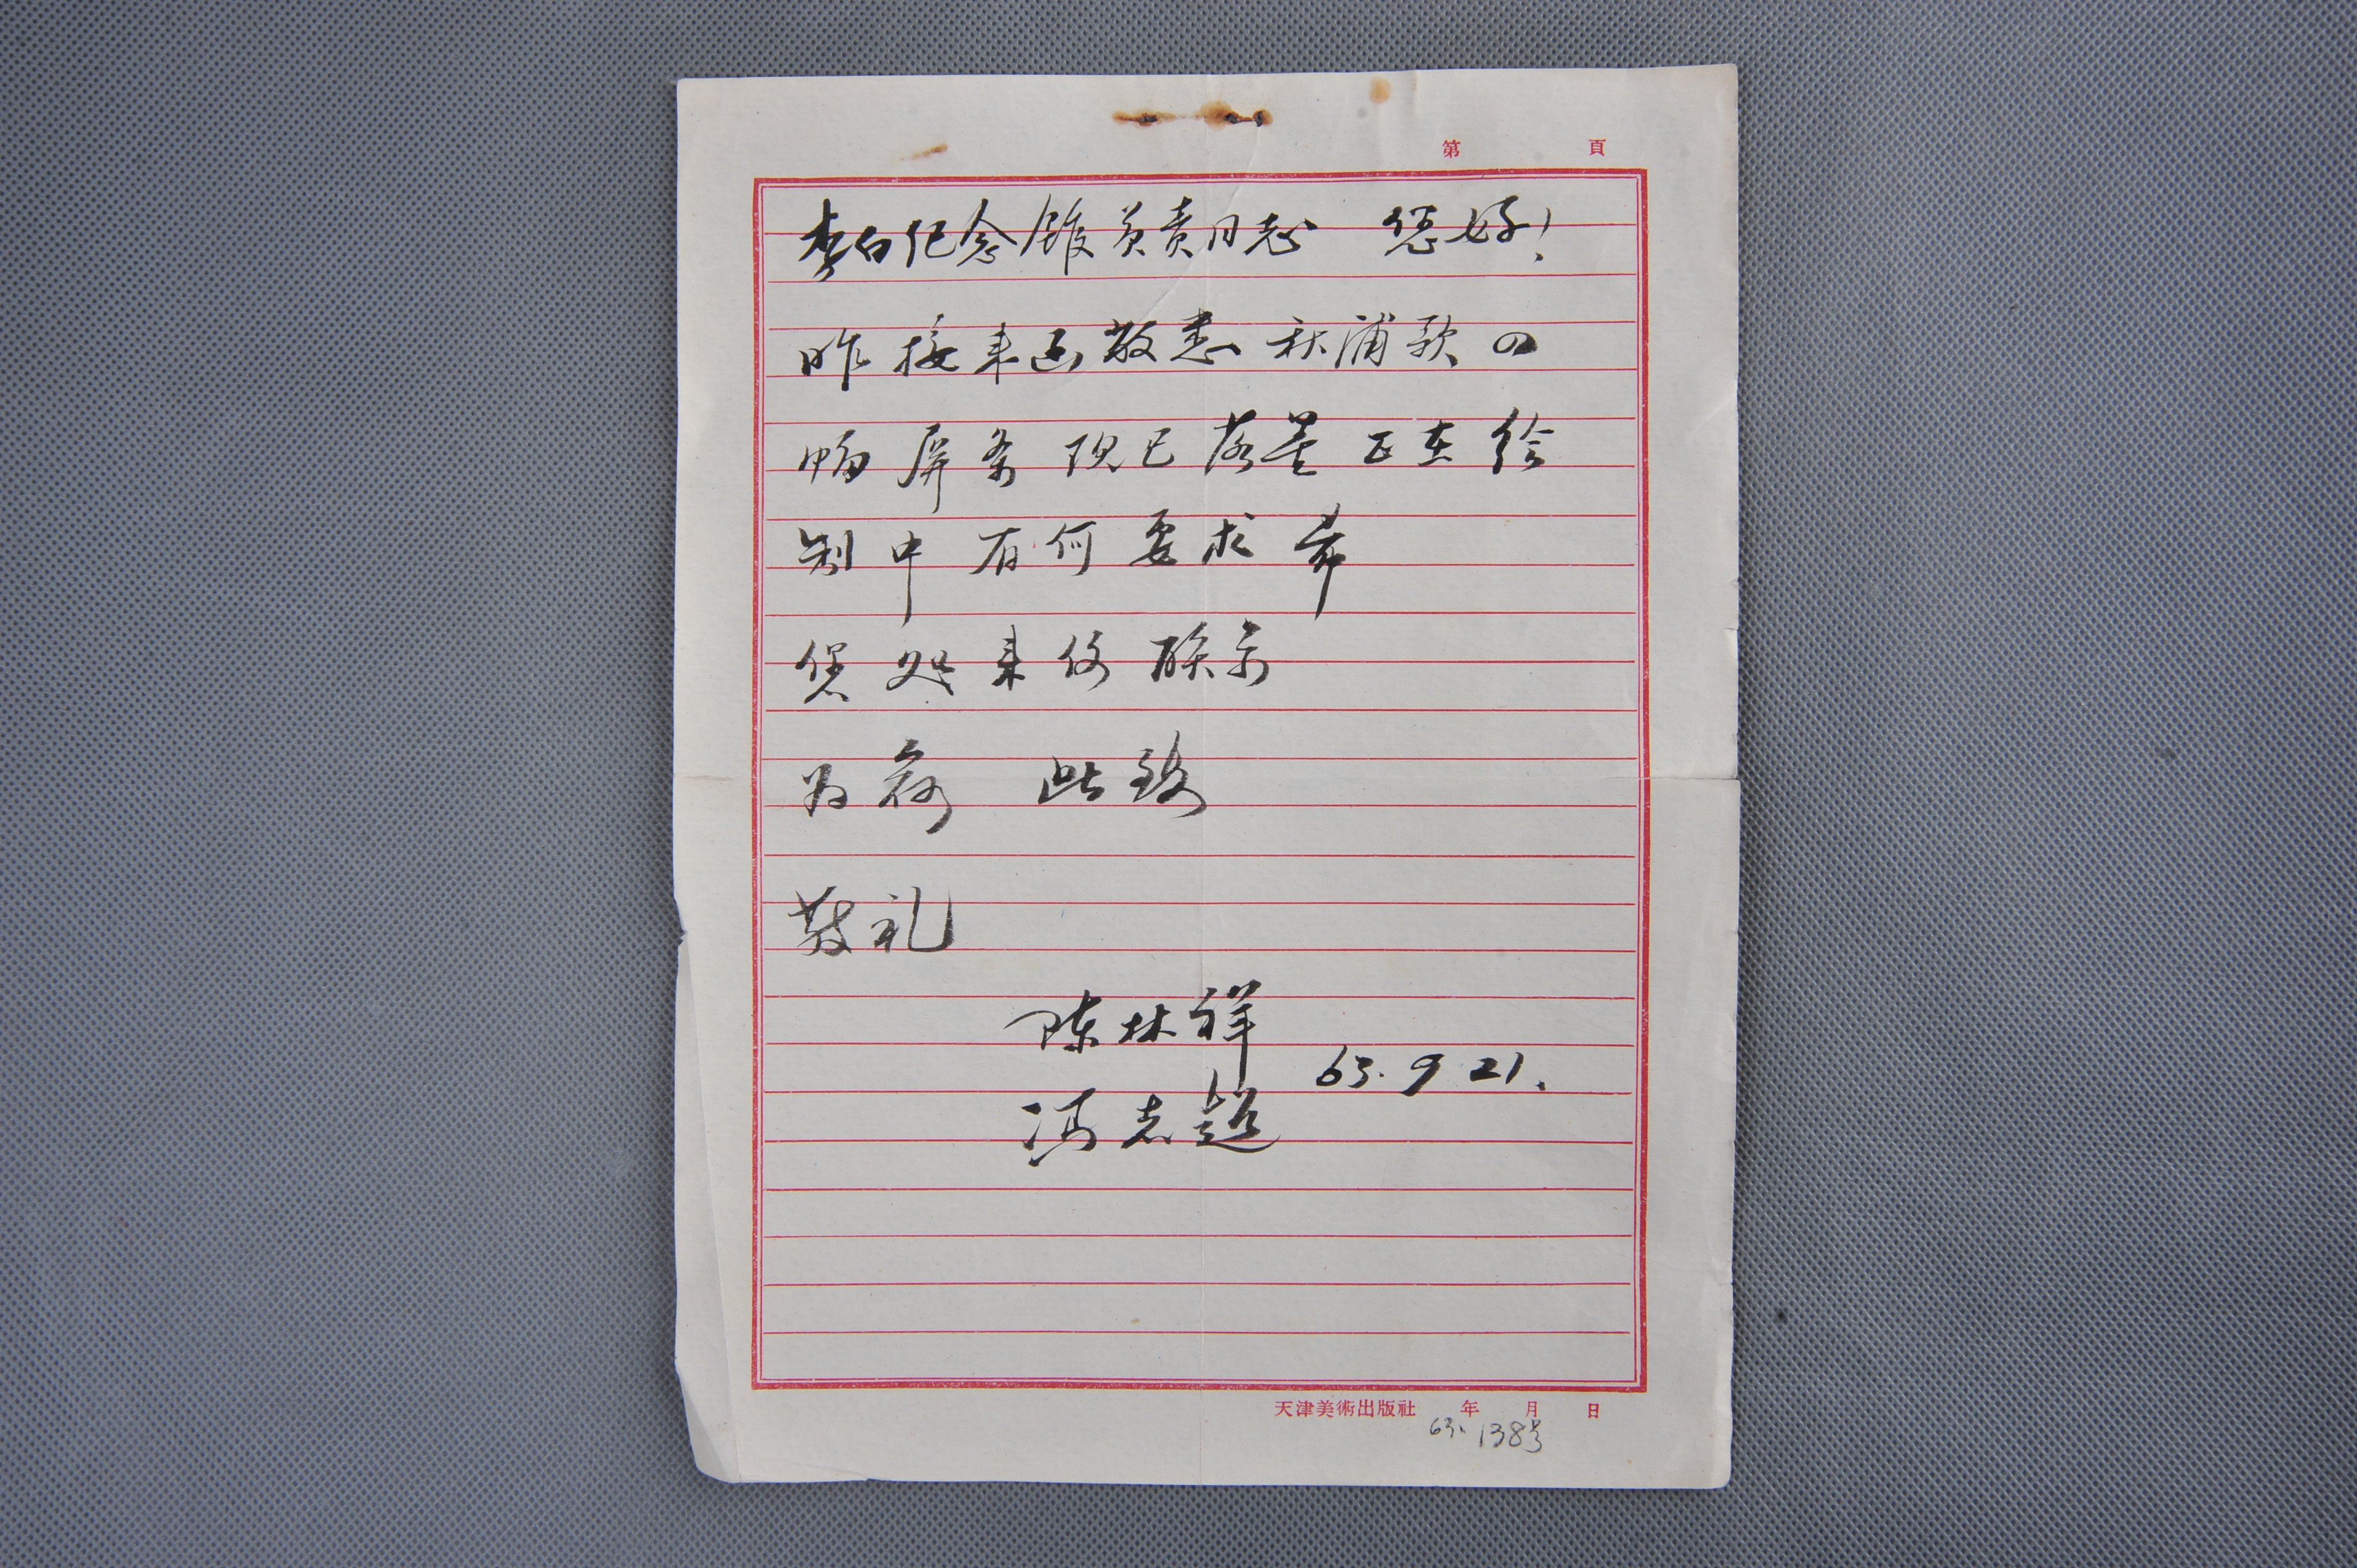 第 頁
李白纪念馆负责同志 您好!
昨接来函敬悉秋浦歌四
幅屏条现已落墨正在绘
制中有何要求希
您处来信联示
为荷 此致
敬礼
陈林祥
63. 9 21.
冯志超
天津美術出版社 年 月 日
63. 138号